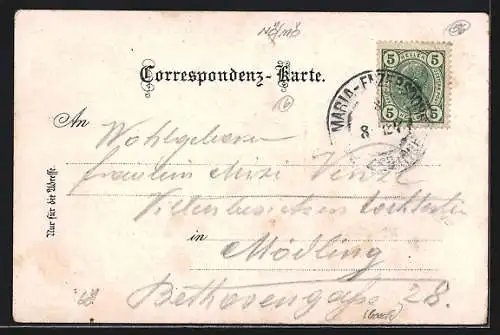 Nö/Mö
Correspondenz-Karte.
5 5
HELLER
5 5
MARIA-ENZERSDORF
8
An
Wohlgeboren
Fräulein Mizi
Villenbesitzers Tochter
in
Mödling
Beethovengasse 28.
Nur für die Adresse.